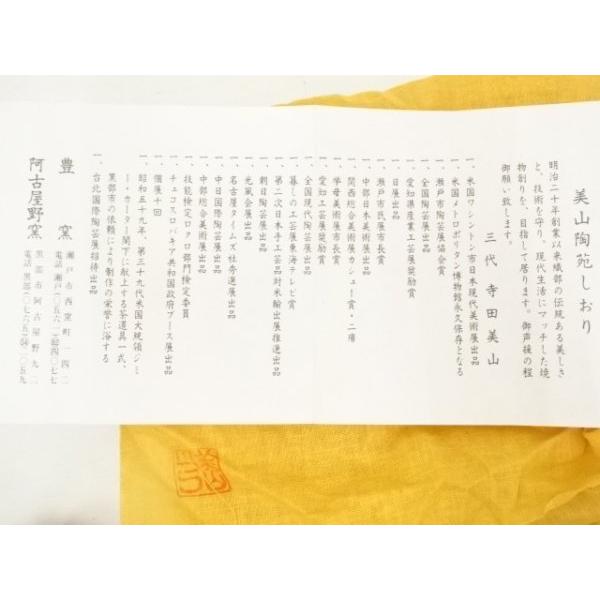 美山陶苑しおり
明治二十年創業以来織部の伝統ある美しさ
と、技術を守り、現代生活にマッチした焼
物創りを、目指して居ります。御声援の程
御願い致します。
三代 寺田美山
一、米国ワシントン市日本現代美術展出品
一、米国メトロポリタン博物館永久保存となる
一、瀬戸市陶芸展協会賞
一、全国陶芸展出品
一、愛知県産業工芸展奨励賞
一、日展出品
一、瀬戸市民展市長賞
一、中部日本美術展出品
一、関西総合美術展カシュー賞・二席
一、学母美術展市長賞
一、愛知工芸展奨励賞
一、全国現代陶芸展出品
一、暮しの工芸展東海テレビ賞
一、第二次日本手工芸品対米輸出展推進出品
一、朝日陶芸展出品
一、光風会展出品
一、名古屋タイムズ社秀選展出品
一、中日国際陶芸展出品
一、中部総合美術展出品
一、技能検定ロクロ部門検定委員
一、チェコスロバキア共和国政府ブース展出品
一、個展十回
一、昭和五十九年、第三十九代米国大統領ジミ
ー・カーター閣下に献上する茶道具一式、
黒部市の依頼により制作の栄誉に浴する
一、台北国際陶芸展招待出品
豊窯 瀬戸市西窯町四二
電話 瀬戸(〇五六一)(82)四〇七七
阿古屋野窯 黒部市阿古屋野九二
電話 黒部(〇七六五)(54)二〇五九